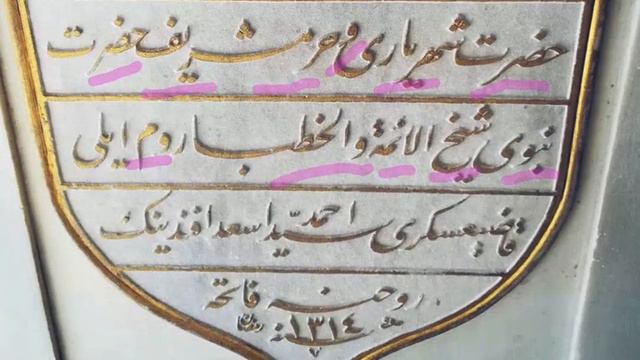 حضرت شهریاری و حرم شریف حضرت
نبوی شیخ الائمة والخطبا روم ایلی
قاضیعسکری سید احمد اسعد افندینك
روحنه فاتحه
سنه ١٣١٤